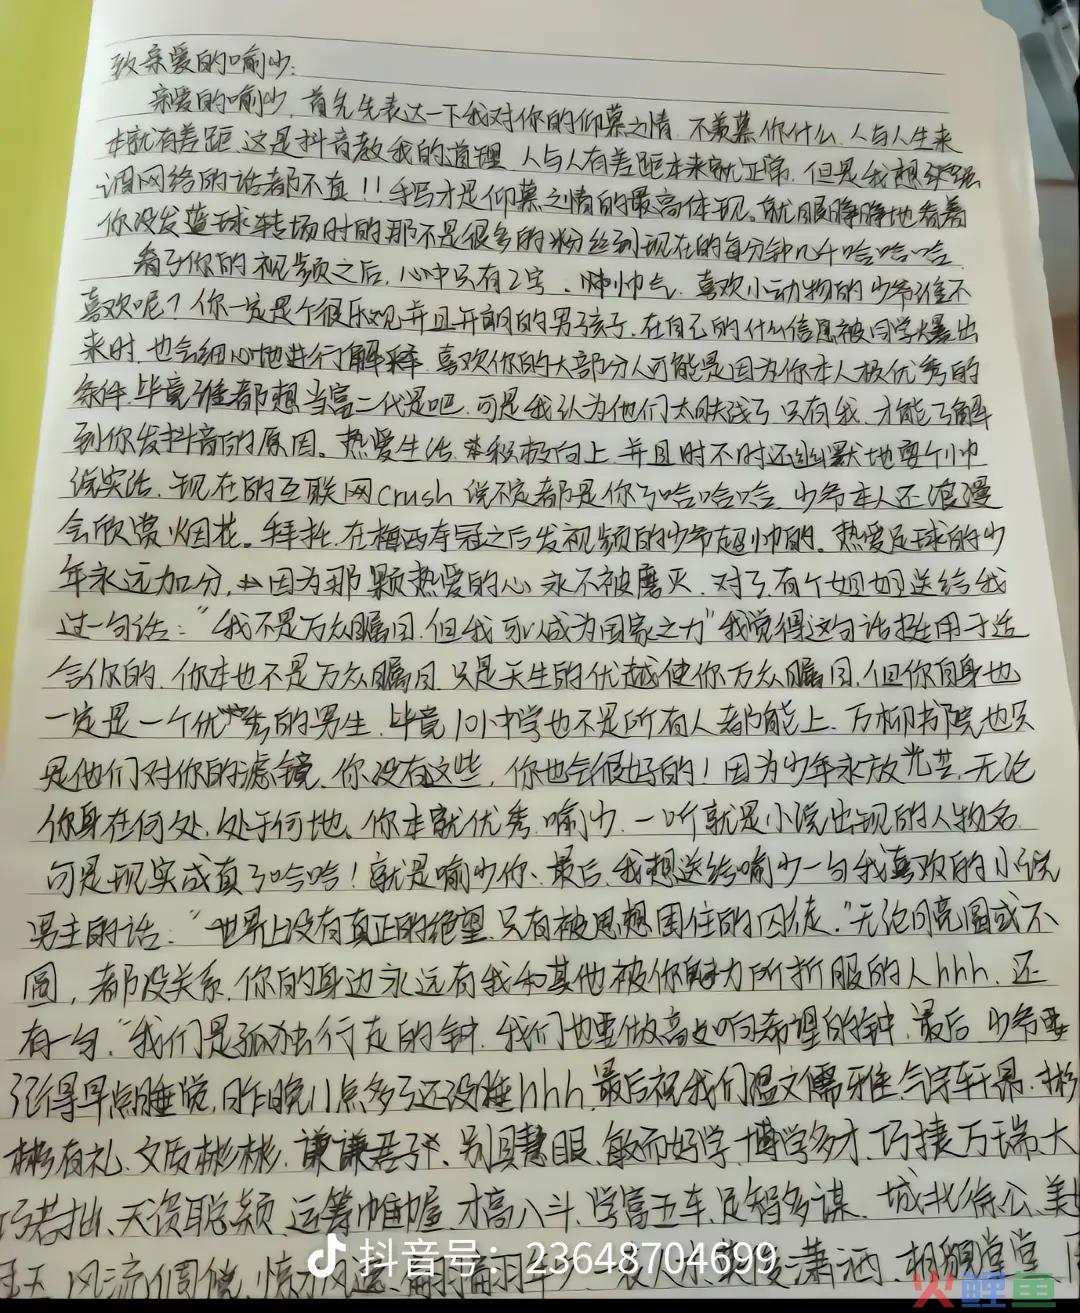 致亲爱的喻少:
亲爱的喻少,首先先表达一下我对你的仰慕之情,不羡慕你什么,人与人生来
本就有差距,这是抖音教我的道理,人与人有差距本来就正常,但是我想
网络的话都不真!!手写才是仰慕之情的最高体现。就眼睁睁地看着
你没发蓝球转场时的那不是很多的粉丝到现在的每分钟几个哈哈哈
看了你的视频之后,心中只有2字、帅气,喜欢小动物的少爷谁不
喜欢呢?你一定是个很乐观并且开朗的男孩子,在自己的什么信息被同学爆出
来时,也会细心地进行解释,喜欢你的大部分人可能是因为你本人极优秀的
条件,毕竟谁都想当富二代是吧,可是我认为他们太肤浅了,只有我,才能了解
到你发抖音的原因。热爱生活,积极向上,并且时不时还幽默地耍个帅
说实话,现在的互联网crush说不定都是你了哈哈哈,少爷本人还浪漫
会欣赏烟花。拜托,在梅西夺冠之后发视频的少爷超帅的。热爱足球的少
年永远加分,因为那颗热爱的心永不被磨灭,对了有个姐姐送给我
过一句话:“我不是万众瞩目,但我可以成为国家之力”我觉得这句话挺用于适
合你的,你本也不是万众瞩目,只是天生的优越使你万众瞩目,但你自身也
一定是一个优秀的男生,毕竟101中学也不是所有人都能上,万柳书院也只
是他们对你的滤镜,你没有这些,你也会很好的!因为少年永放光芒,无论
你身在何处,处于何地、你本就优秀,喻少,一听就是小说出现的人物名
可是现实成真了哈哈!就是喻少你、最后,我想送给喻少一句我喜欢的小说
男主的话:“世界上没有真正的绝望,只有被思想困住的囚徒,”无论月亮圆或不
圆,都没关系,你的身边永远有我和其他被你魅力所折服的人hhh,还
有一句,“我们是孤独行走的钟,我们也要做高响希望的钟,最后,少爷要
记得早点睡觉,昨晚11点多了还没睡hhh,最后祝我们温文儒雅,气宇轩昂,彬
彬有礼,文质彬彬,谦谦君子、别具慧眼、敏而好学,博学多才,巧捷万端,大
巧若拙、天资聪颖,运筹帷幄,才高八斗、学富五车、足智多谋,城北徐公,美
风流倜傥,潇洒,相貌堂堂
抖音号：23648704699
火鲤鱼